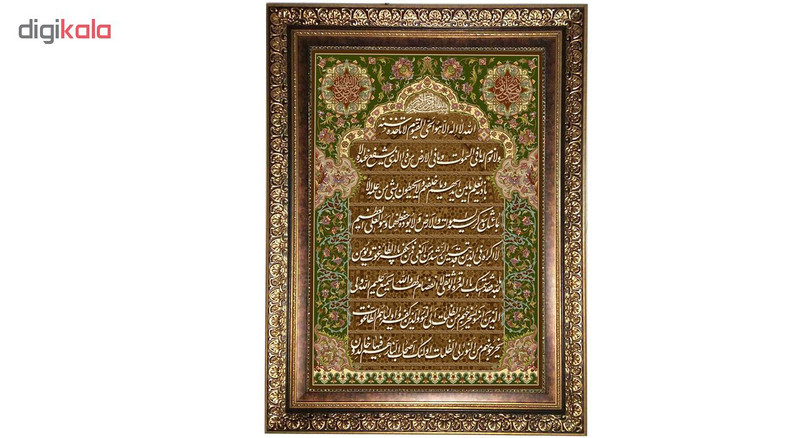 digikala
الله لا اله الا هو الحی القیوم لا تاخذه سنة
ولا نوم له ما فی السموات وما فی الارض من ذا الذی یشفع عنده الا
باذنه یعلم ما بین ایدیهم وما خلفهم ولا یحیطون بشئ من علمه الا
بما شاء وسع کرسیه السموات والارض ولا یؤده حفظهما وهو العلی العظیم
لا اکراه فی الدین قد تبین الرشد من الغی فمن یکفر بالطاغوت ویؤمن
بالله فقد استمسک بالعروة الوثقی لا انفصام لها والله سمیع علیم الله ولی
الذین آمنوا یخرجهم من الظلمات الی النور والذین کفروا اولیائهم الطاغوت
یخرجونهم من النور الی الظلمات اولئک اصحاب النار هم فیها خالدون